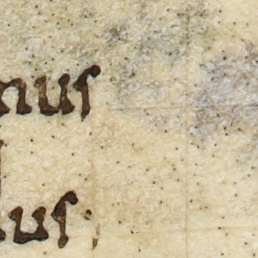 nus
us